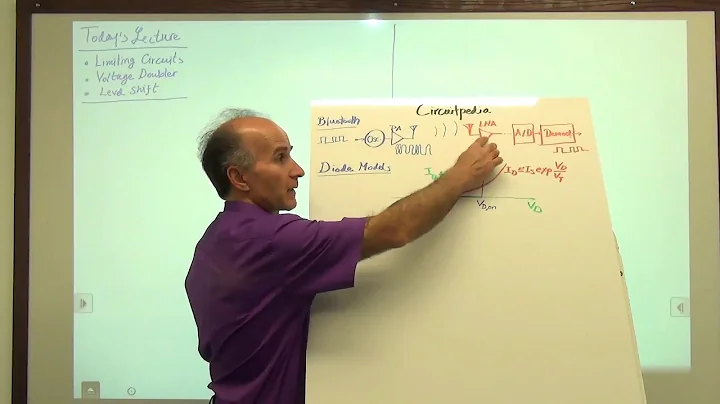 Today's Lecture
• Limiting Circuits
• Voltage Doubler
• Level Shift
Circuitpedia
Bluetooth
Osc
PA
LNA
A/D
Demod
Diode Models
I_D ≈ I_S exp V_D/V_T
V_D,on
V_D